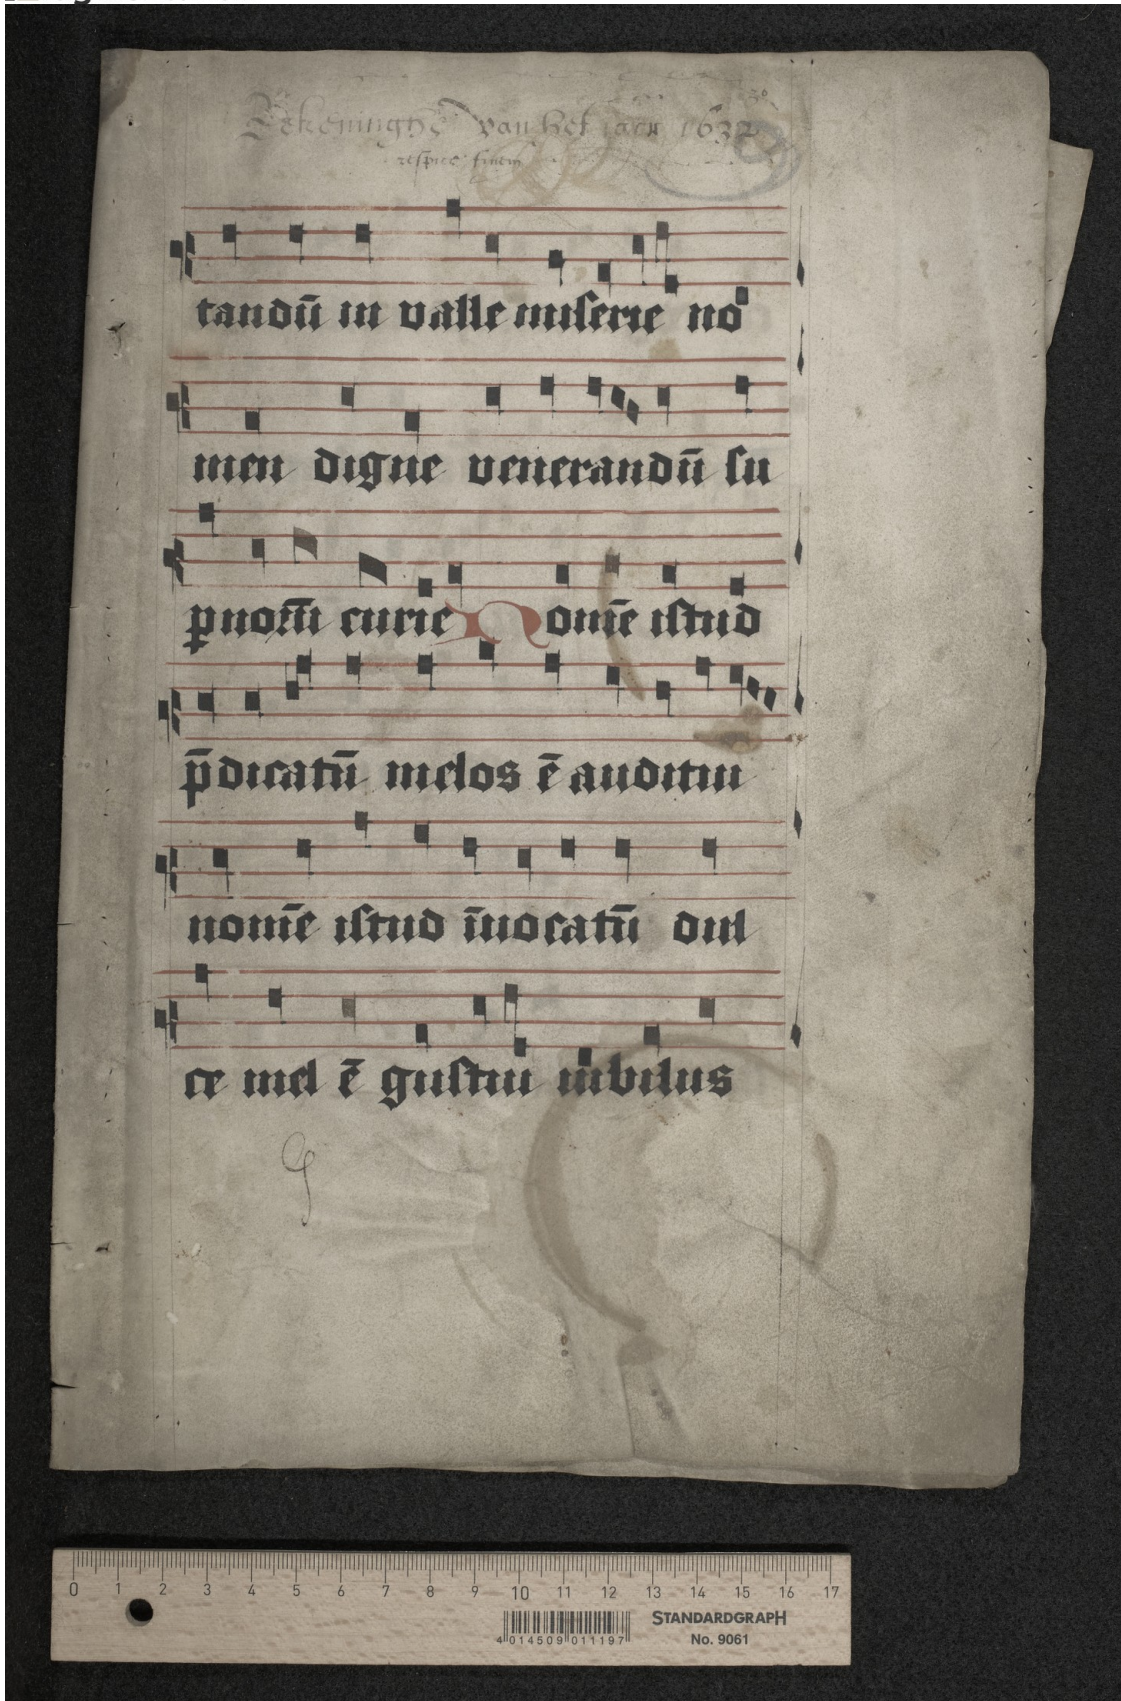 Rekeninghe van het jaer 1632
respice finem
tandū in valle miserie no
men digne venerandū su
ꝑnoꝝ curie Nom̄e istud
p̄dicatū melos ē auditui
nom̄e istud īuocatū dul
ce mel ē gustui iubilus
0 1 2 3 4 5 6 7 8 9 10 11 12 13 14 15 16 17
STANDARDGRAPH
No. 9061
4 014509 011197